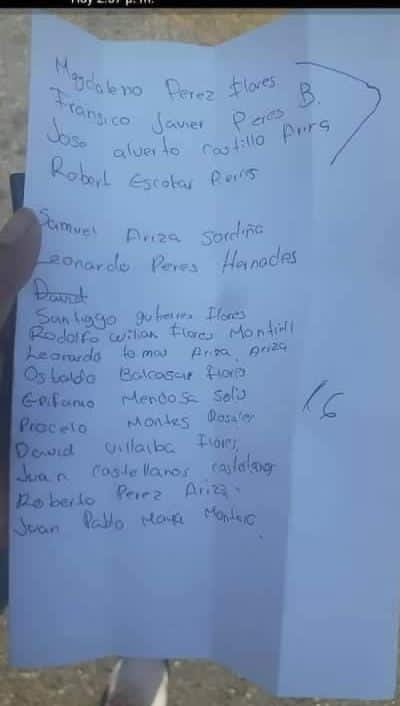 Hoy 2:37 p. m.
Magdaleno Perez flores
Fransico Javier Peres B.
Jose alverto castillo Ariza
Robert Escobar Reires
Samuel Ariza Sordiña
Leonardo Peres Hernades
David
Santiggo gutierres Flores
Rodolfo wilian flores Montiill
Leonardo tomas Ariza, Ariza
Osbaldo Balcasar floris
Epifanio Mendosa Solis
Procelo Montes Rosales
David villalba Flores,
Juan castellanos castellanos
Roberto Perez Ariza.
Juan Pablo Montero.
16